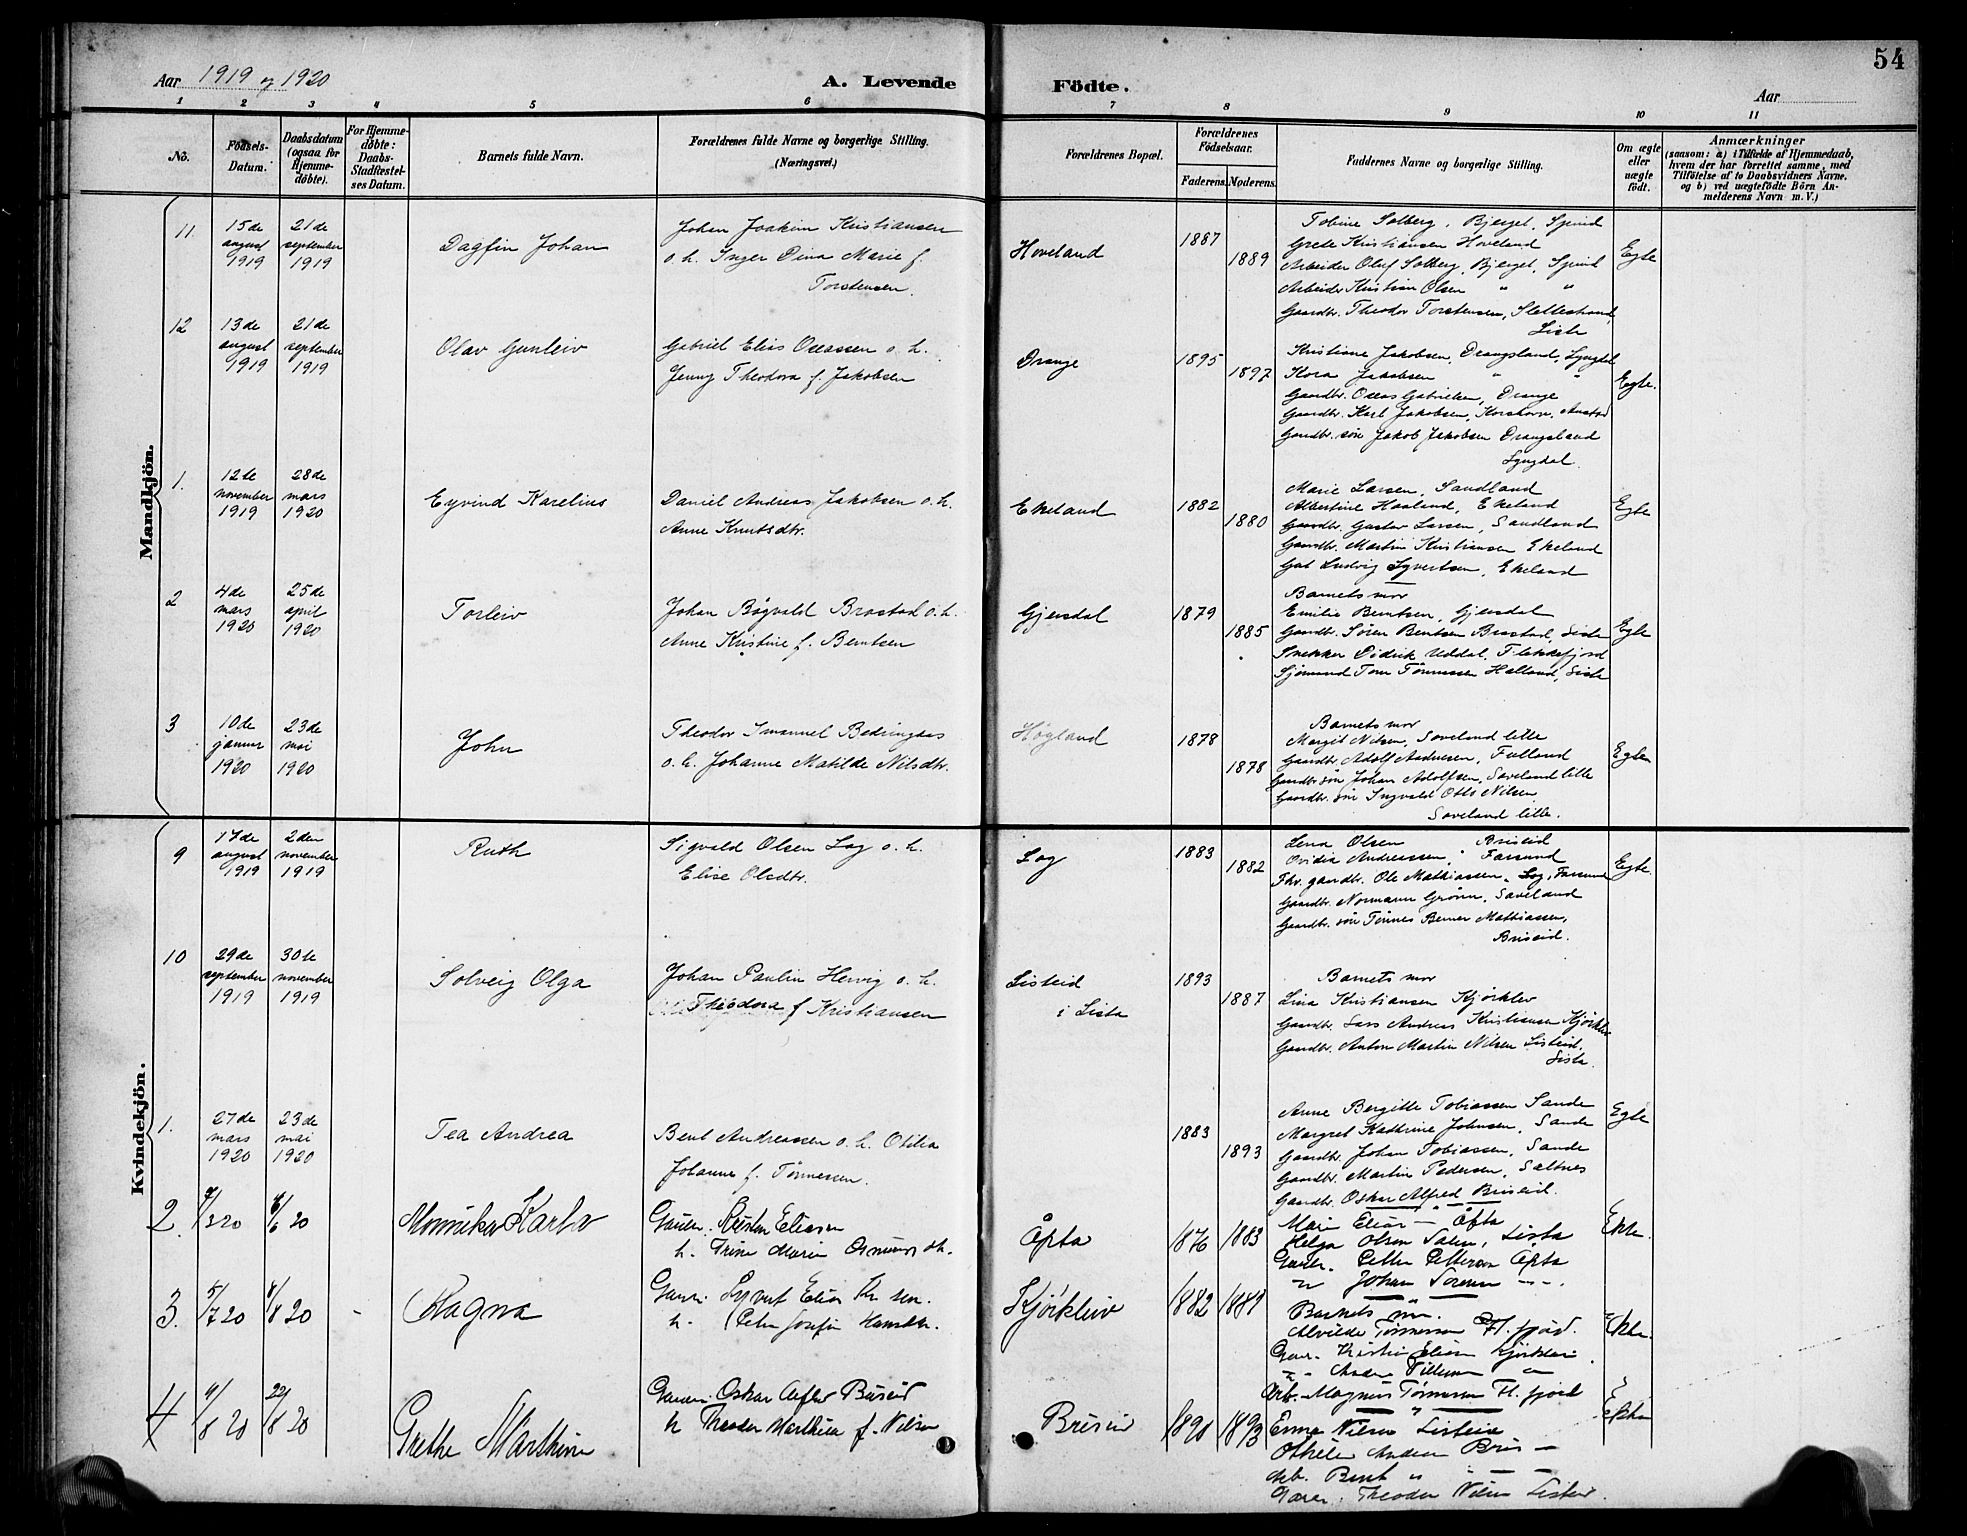 54
Aar 1919 og 1920
A. Levende Födte.
Aar
1 2 3 4 5 6 7 8 9 10 11
No.
Födsels-Datum.
Daabsdatum (ogsaa for Hjemme-döbte).
For Hjemme-döbte: Daabs-Stadfæstel-ses Datum.
Barnets fulde Navn.
Forældrenes fulde Navne og borgerlige Stilling.
(Næringsvei.)
Forældrenes Bopæl.
Forældrenes Födselsaar.
Faderens. Moderens.
Faddernes Navne og borgerlige Stilling.
Om ægte eller uægte födt.
Anmærkninger
(saasom: a) i Tilfælde af Hjemmedaab,
hvem der har forrettet samme, med
Tilföielse af to Daabsvidners Navne.
og b) ved uægtefödte Börn An-
melderens Navn m. V.)
Mandkjön.
11. 15de august 1919
21de september 1919
Dagfin Johan
Johan Joakim Kristiansen
o. h. Inger Dina Marie f.
Torstensen.
Hoveland
1887
1889
Tobine Solberg, Bjerget, Spind
Grete Kristiansen Hoveland
Arbeider Oluf Solberg, Bjerget, Spind
Arbeider Kristian Olsen " "
Gaardbr. Theodor Torstensen, Slettestrand,
Liste
Egte
12 13de august 1919
21de september 1919
Olav Gunleiv
Gabriel Elias Oseassen o. h.
Jenny Theodora f. Jakobsen
Drange
1895
1897
Kristiane Jakobsen, Drangsland, Lyngdal
Kora Jakobsen " "
Gaardbr. Oseas Gabrielsen, Drange
Gaardbr. Karl Jakobsen, Korshavn, Austad
Gaardbr. søn Jakob Jakobsen Drangsland
Lyngdal.
Egte.
1. 12te november 1919
28de mars 1920
Eyvind Karelius
Daniel Andreas Jakobsen o. h.
Anne Knutsdtr.
Ekeland
1882
1880
Marie Larsen, Sandland
Albertine Haaland, Ekeland
Gaardbr. Gustav Larsen, Sandland
Gaardbr. Martin Kristiansen Ekeland
Gut Ludvig Syvertsen, Ekeland
Egte
2 4de mars 1920
25de april 1920
Torleiv
Johan Bøgvald Brastad o. h.
Anne Kristine f. Berntsen
Gjersdal
1879
1885
Barnets mor
Emilie Berntsen, Gjersdal
Gaardbr. Søren Bentsen Brastad, Liste
Snekker Didrik Uddal, Flekkefjord
Sjømand Tom Tønnessen Halland, Lista
Egte
3 10de januar 1920
23de mai 1920
John
Theodor Imanuel Bedringaas
o. h. Johanne Matilde Nilsdtr.
Høgland
1878
1878
Barnets mor
Margit Nilsen, Saveland lille
Gaardbr. Adolf Andresen, Fulland
Gaardbr søn Johan Adolfsen, Saveland lille
Gaardbr. søn Ingvald Otto Nilsen
Saveland lille.
Egte
Kvindekjön.
9 17de august 1919
2den november 1919
Ruth
Sigvald Olsen Log o. h.
Elise Olsdtr.
Log
1883
1882
Lena Olsen Briseid
Ovidia Andreassen, Farsund
Fhv. gaardbr. Ole Mathiassen, Log, Farsund
Gaardbr. Normann Grønn, Saveland
Gaardbr. søn Tønnes Berner Mathiassen,
Briseid.
Egte.
10 29de september 1919
30te november 1919
Solveig Olga
Johan Paulin Hervig o. h.
Theodora f Kristiansen
Listeid
i Lista
1893
1887
Barnets mor
Lina Kristiansen Kjørklev
Gaardbr. Lars Andreas Kristiansen Kjørklev
Gaardbr. Anton Martin Nilsen Listeid,
Lista.
1. 27de mars 1920
23de mai 1920
Tea Andrea
Bent Andreassen o. h. Otilia
Johanne f. Tønnessen.
1883
1893
Anne Bergitte Tobiassen Sande
Margret Kathrine Johnsen, Sande
Gaardbr. Johan Tobiassen, Sande
Gaardbr. Martin Pedersen, Saltnes
Gaardbr. Oskar Alfred Briseid.
Egte
2. 7/3 20
6/6 20
Monnika Karla
Gaardbr. Kristen Eliasen
h. Trine Marie Osmundsdtr.
Åpta
1876 1883
Marie Elias – Åpta
Helga Olsen, Lista
Gaardbr. Petter Pettersen Åpta
" Johan Sørensen – " –
Ekte.
3. 5/7 20
1/8 20
–
Magna
Gaardbr. Syvert Elias Kr.sen.
h. Petra Josefine Hansdtr.
Kjørkleiv
1882 1881
Barnets mor.
Alvilde Tønnesen Fl. fjord.
Gaardbr. Kristen Eliasen Kjørkleiv
" Villumsen "
Arb. Magnus Tønnesen Fl. fjord
Ekte.
4 4/8 20
22/8 20
Grethe Marthine
Gaardbr. Oskar Alfred Briseid
h Theodor Marthea f. Nilsen
Briseid
1890 1893
Emma Nilsen Listeid
Othelie Andrea Bris –
Arb. Bent " "
Gaardbr. Theodor Nilsen Listeid.
Ekte